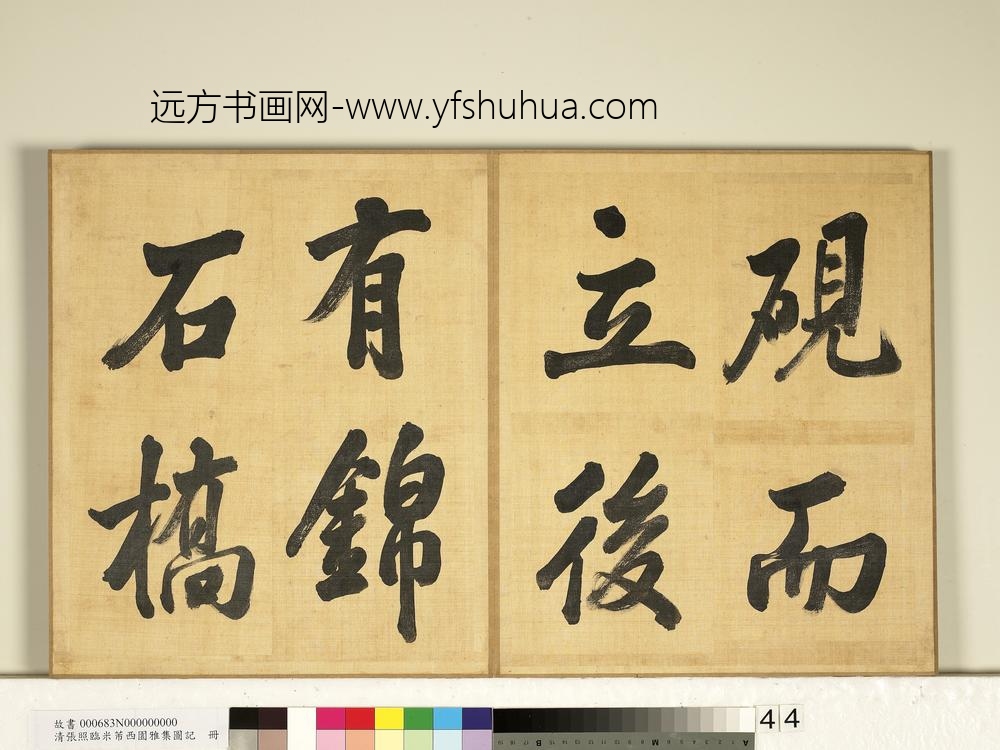 远方书画网-www.yfshuhua.com
硯而
立後
有錦
石橋
故書 000683N000000000
清張照臨米芾西園雅集圖記 冊
44